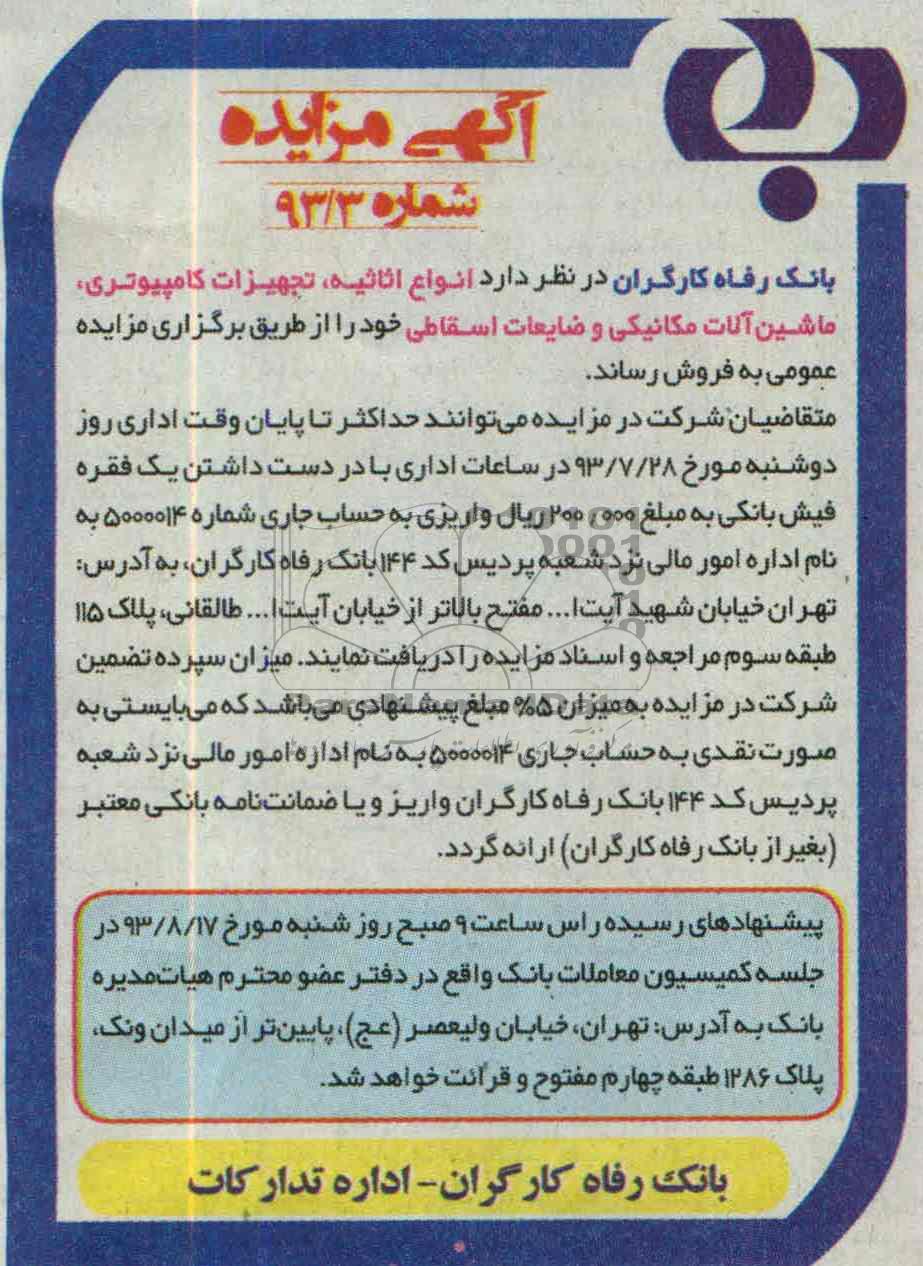 آگهی مزایده
شماره ۹۳/۳
بانک رفاه کارگران در نظر دارد انواع اثاثیه، تجهیزات کامپیوتری،
ماشین‌آلات مکانیکی و ضایعات اسقاطی خود را از طریق برگزاری مزایده
عمومی به فروش رساند.
متقاضیان شرکت در مزایده می‌توانند حداکثر تا پایان وقت اداری روز
دوشنبه مورخ ۹۳/۷/۲۸ در ساعات اداری با در دست داشتن یک فقره
فیش بانکی به مبلغ ۲۰۰,۰۰۰ ریال واریزی به حساب جاری شماره ۵۰۰۰۰۱۴ به
نام اداره امور مالی نزد شعبه پردیس کد ۱۴۴ بانک رفاه کارگران، به آدرس:
تهران خیابان شهید آیت‌ا... مفتح بالاتر از خیابان آیت‌ا... طالقانی، پلاک ۱۱۵
طبقه سوم مراجعه و اسناد مزایده را دریافت نمایند. میزان سپرده تضمین
شرکت در مزایده به میزان ۵% مبلغ پیشنهادی می‌باشد که می‌بایستی به
صورت نقدی به حساب جاری ۵۰۰۰۰۱۴ به نام اداره امور مالی نزد شعبه
پردیس کد ۱۴۴ بانک رفاه کارگران واریز و یا ضمانت‌نامه بانکی معتبر
(بغیر از بانک رفاه کارگران) ارائه گردد.
پیشنهادهای رسیده راس ساعت ۹ صبح روز شنبه مورخ ۹۳/۸/۱۷ در
جلسه کمیسیون معاملات بانک واقع در دفتر عضو محترم هیات‌مدیره
بانک به آدرس: تهران، خیابان ولیعصر (عج)، پایین‌تر از میدان ونک،
پلاک ۱۲۸۶ طبقه چهارم مفتوح و قرائت خواهد شد.
بانک رفاه کارگران- اداره تدارکات